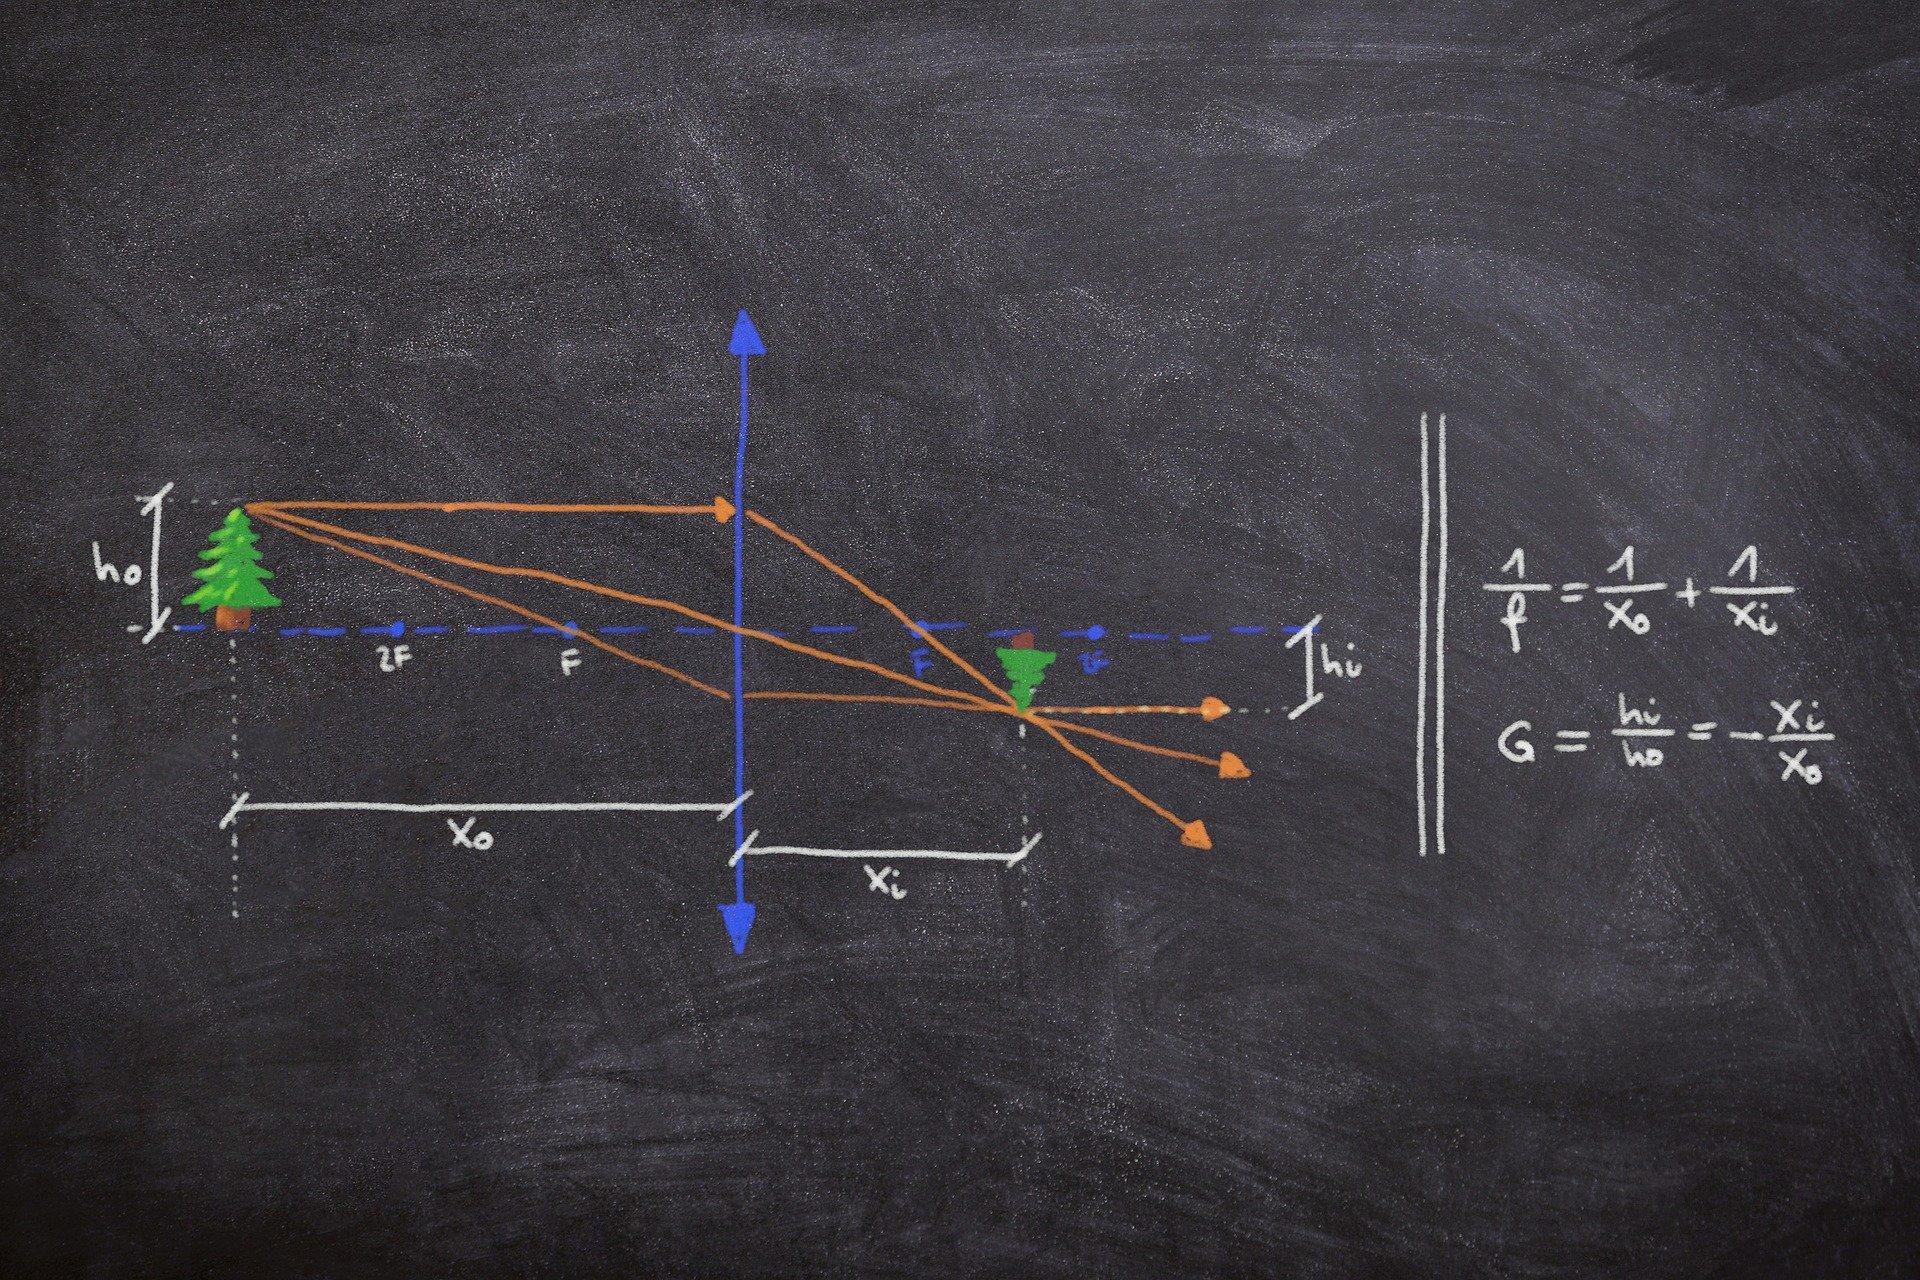 ho
2F
F
F
2F
hi
xo
xi
1/f = 1/xo + 1/xi
G = hi/ho = - xi/xo